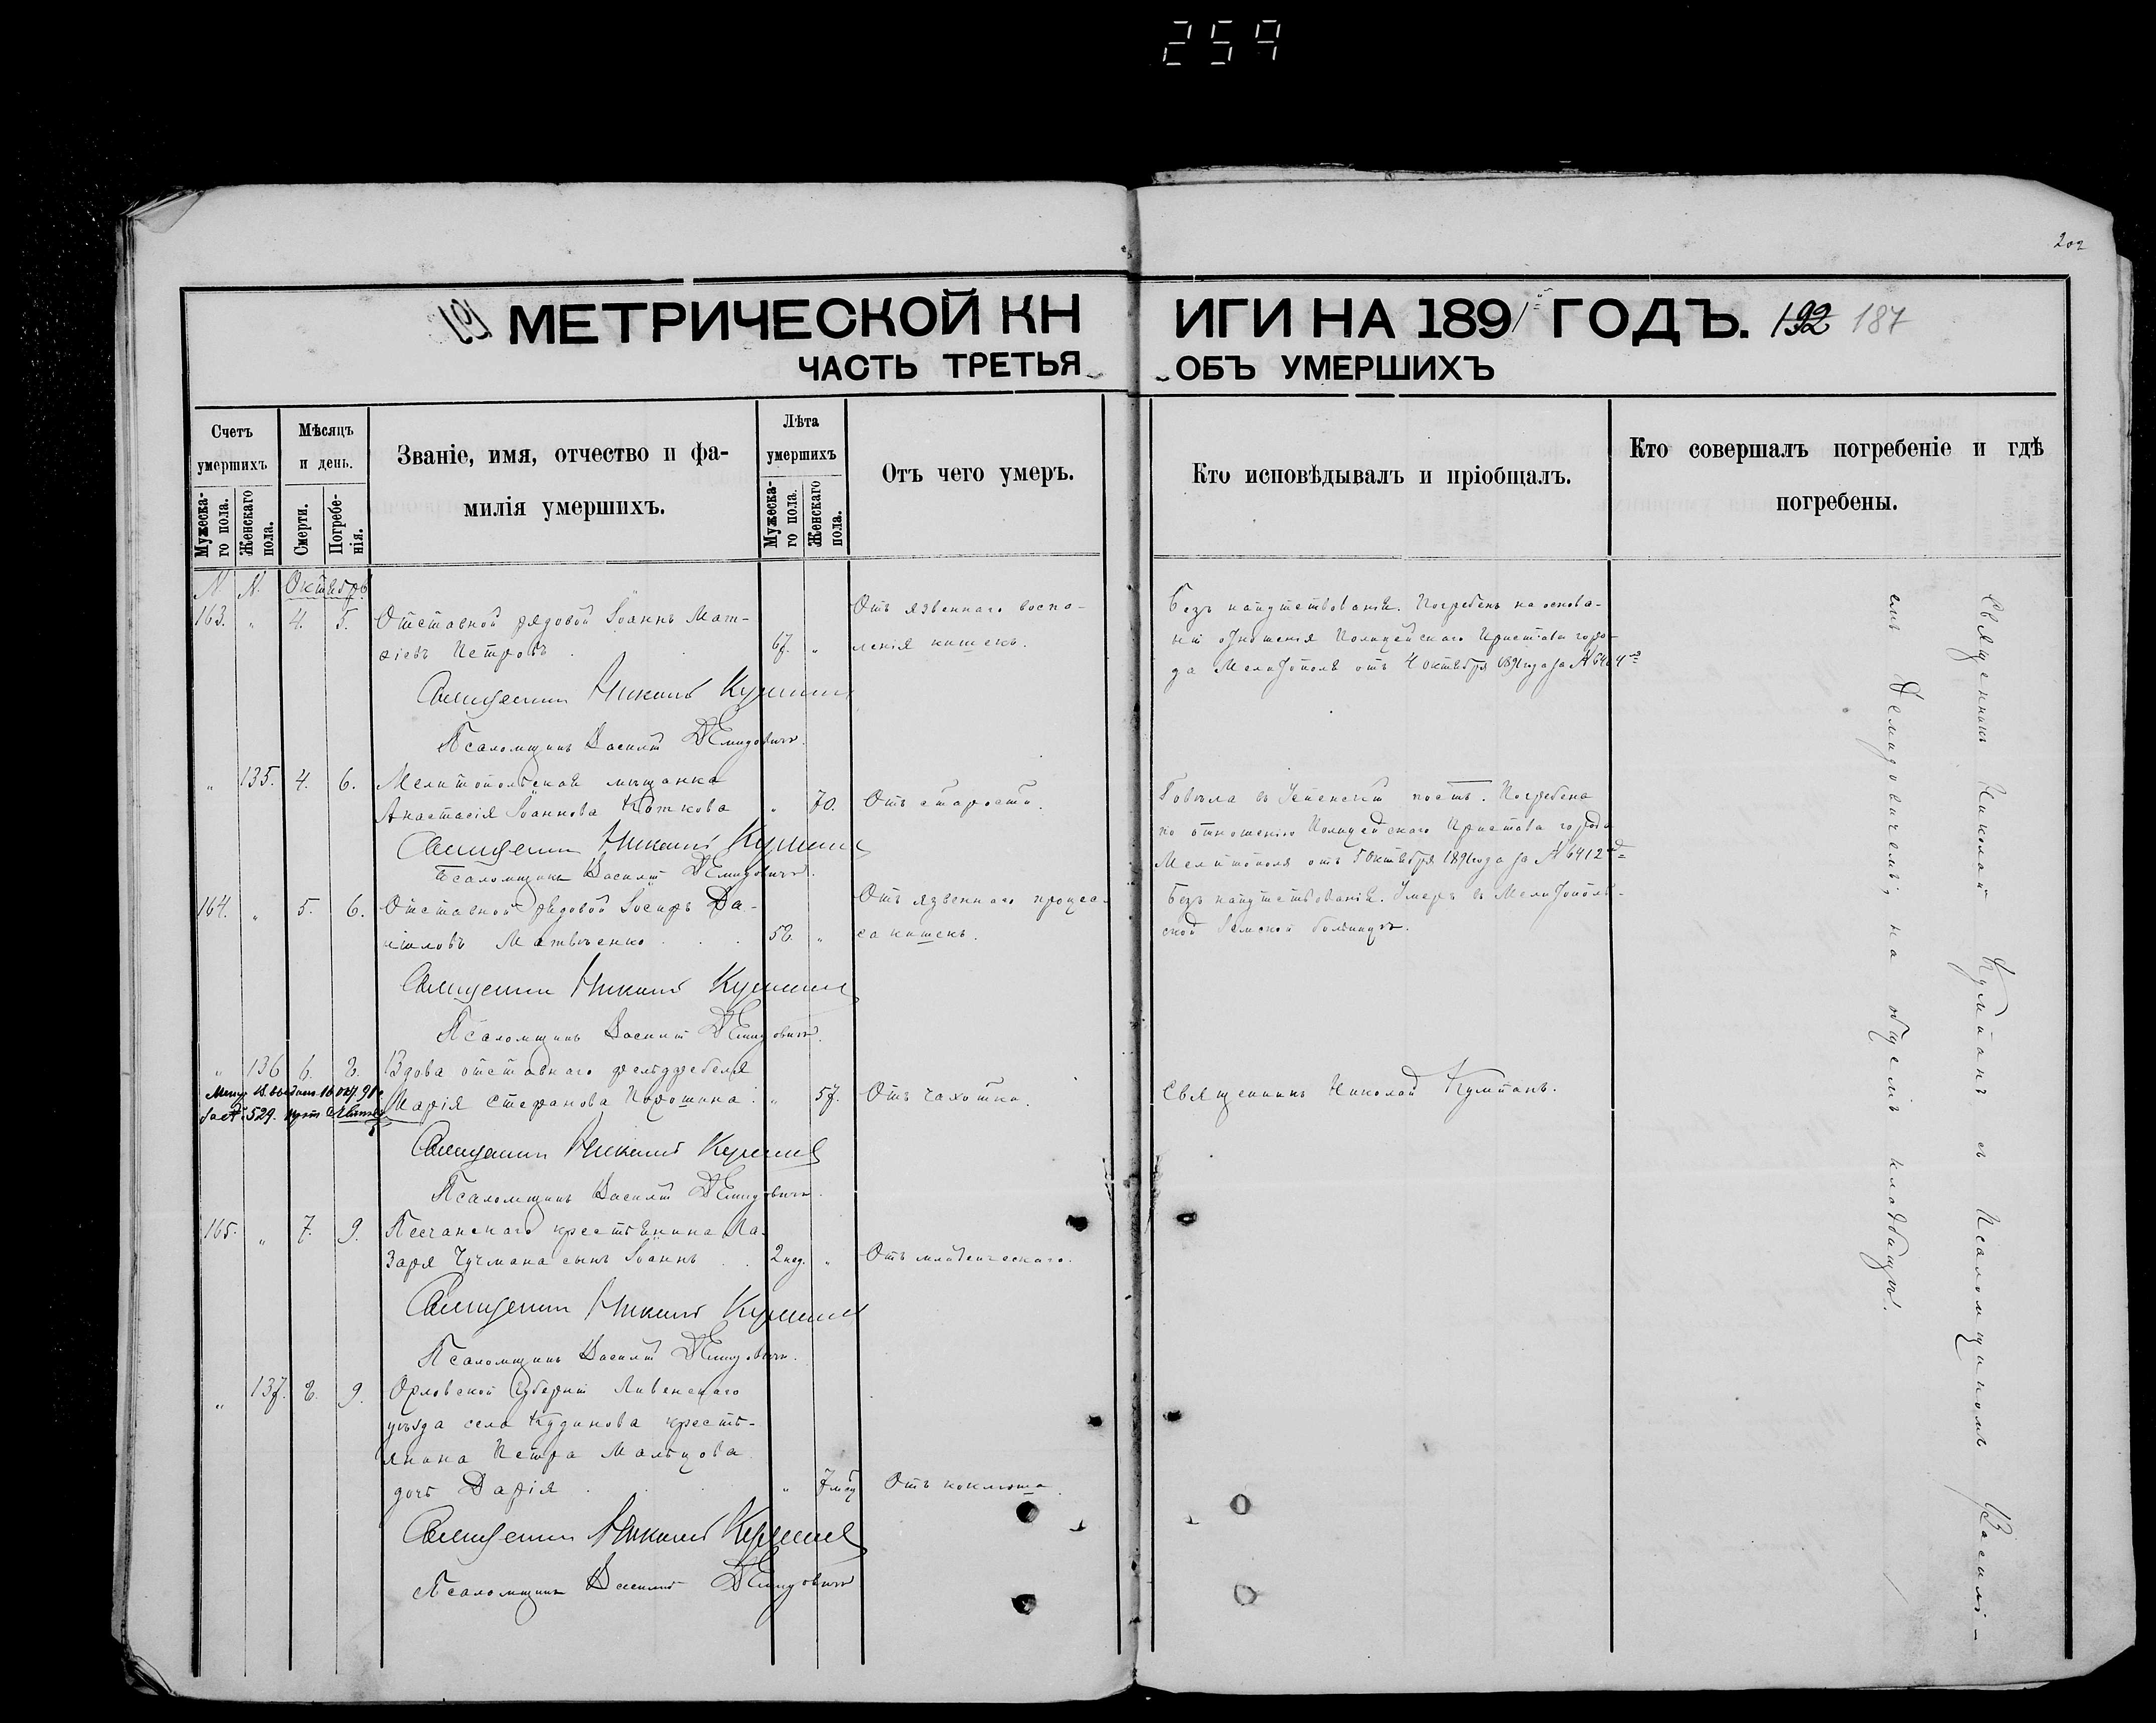 259
202
191 МЕТРИЧЕСКОЙ КН ИГИ НА 1891 й ГОДЪ. 192 187
ЧАСТЬ ТРЕТЬЯ ОБЪ УМЕРШИХЪ
Счетъ умершихъ
Мужеска-го пола.
Женскаго пола.
Мѣсяцъ и день.
Смерти.
Погребе-нія.
Званіе, имя, отчество и фа-
милія умершихъ.
Лѣта умершихъ
Мужеска-го пола.
Женскаго пола.
Отъ чего умеръ.
Кто исповѣдывалъ и пріобщалъ.
Кто совершалъ погребеніе и гдѣ
погребены.
N. N. Октябрь
163. " 4. 5. Отставной рядовой Іоаннъ Мат- Отъ язвеннаго воспа- Безъ напутствованія. Погребенъ на основа-
ѳіевъ Петровъ . . 67. " ленія кишекъ. ніи отношенія Полицейскаго Пристава горо-
да Мелитополя отъ 4 октября 1891 года за № 6404
Священникъ Николай Кулманъ
Псаломщикъ Василій Демидовичъ.
" 135. 4. 6. Мелитопольская мѣщанка
Анастасія Іоаннова Коткова " 70. Отъ старости. Говѣла въ Успенскій постъ. Погребена
по отношенію Полицейскаго Пристава города
Мелитополя отъ 5 октября 1891 года за № 6412
Священникъ Николай Кулманъ
Псаломщикъ Василій Демидовичъ.
164. " 5. 6. Отставной рядовой Іосифъ Да- Отъ язвеннаго процес- Безъ напутствованія. Умеръ въ Мелитополь-
ніиловъ Матвѣенко . . . 58. " са кишекъ. ской Земской больницѣ.
Священникъ Николай Кулманъ
Псаломщикъ Василій Демидовичъ.
" 136 6. 8. Вдова отставного фельдфебеля
Марія Стефанова Порошина . " 57. Отъ чахотки. Священникъ Николай Кулманъ.
за № 529.
Священникъ Николай Кулманъ
Псаломщикъ Василій Демидовичъ.
165. " 7. 9. Песчанскаго крестьянина Ла-
заря Чучмана сынъ Іоаннъ . . 2 нед. " Отъ младенческаго.
Священникъ Николай Кулманъ
Псаломщикъ Василій Демидовичъ.
" 137. 8. 9. Орловской губерніи Ливенскаго
уѣзда села Кудинова кресть-
янина Петра Мальцова
дочь Дарія . . . " 7 мѣс. Отъ коклюша.
Священникъ Николай Кулманъ
Псаломщикъ Василій Демидовичъ
Священникъ Николай Кулманъ съ Псаломщикомъ Василі-
емъ Демидовичемъ, на общемъ кладбищѣ.